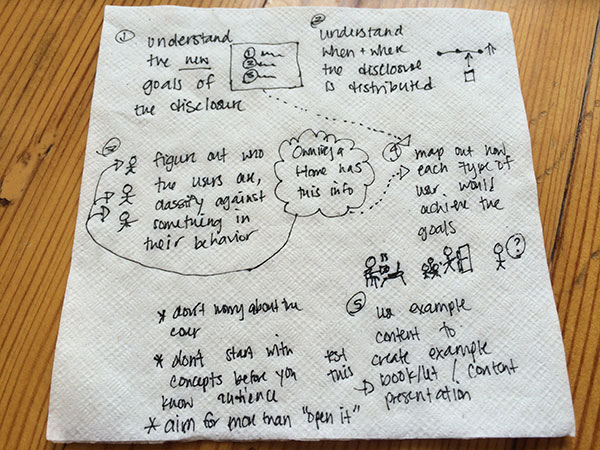 1 understand
the new
goals of
the disclosure
1
2
3
2 understand
when + where
the disclosure
is distributed
3 figure out who
the users are,
classify against
something in
their behavior
Owning a
Home has
this info
4 map out how
each type of
user would
achieve the
goals
?
* don't worry about the
cover
* don't start with
concepts before you
know audience
* aim for more than "open it"
5 use example
content to
create example
booklet / content
presentation
test
this